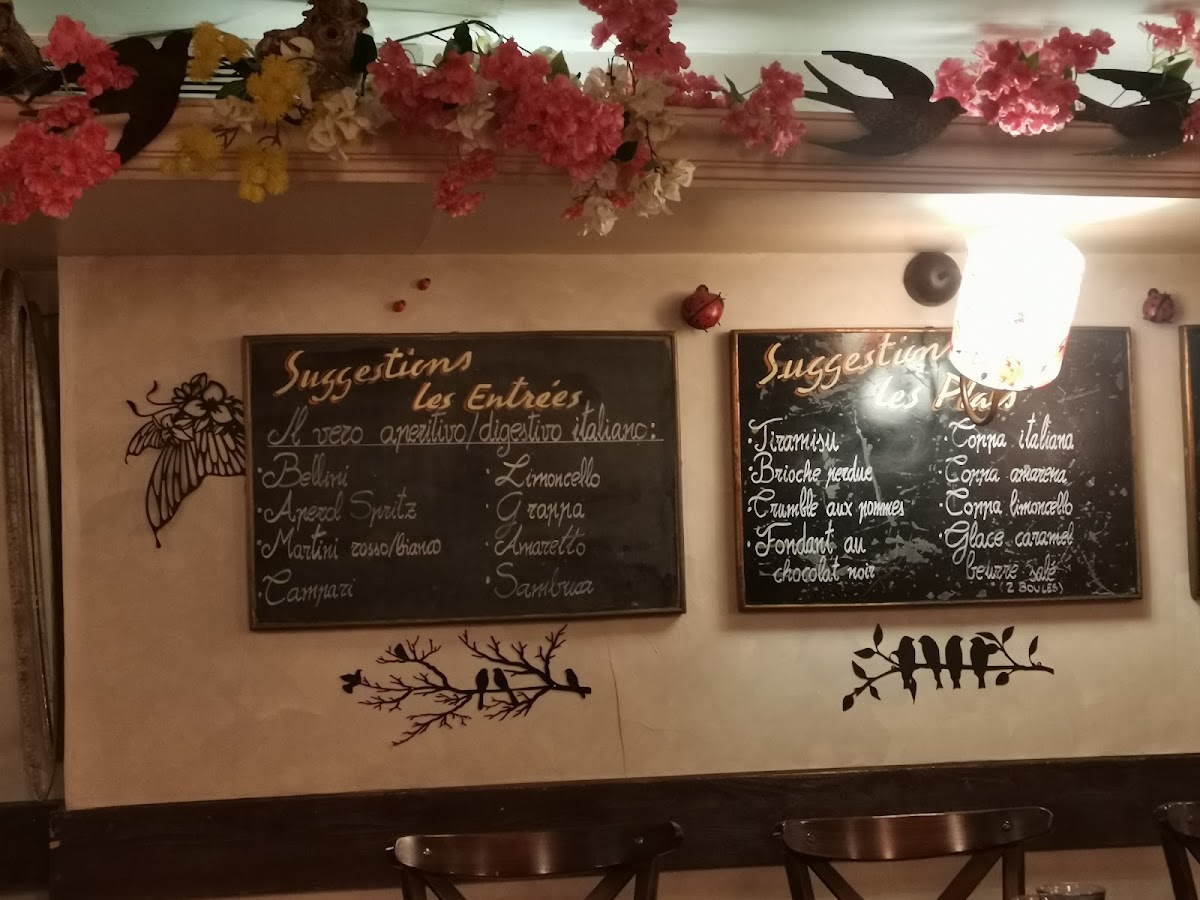 Suggestions
les Entrées
Il vero aperitivo/digestivo italiano:
·Bellini
·Aperol Spritz
·Martini rosso/bianco
·Campari
·Limoncello
·Grappa
·Amaretto
·Sambuca
Suggestions
les Plats
·Tiramisu
·Brioche perdue
·Crumble aux pommes
·Fondant au
chocolat noir
·Coppa italiana
·Coppa amarena
·Coppa limoncello
·Glace caramel
beurre salé
(2 BOULES)